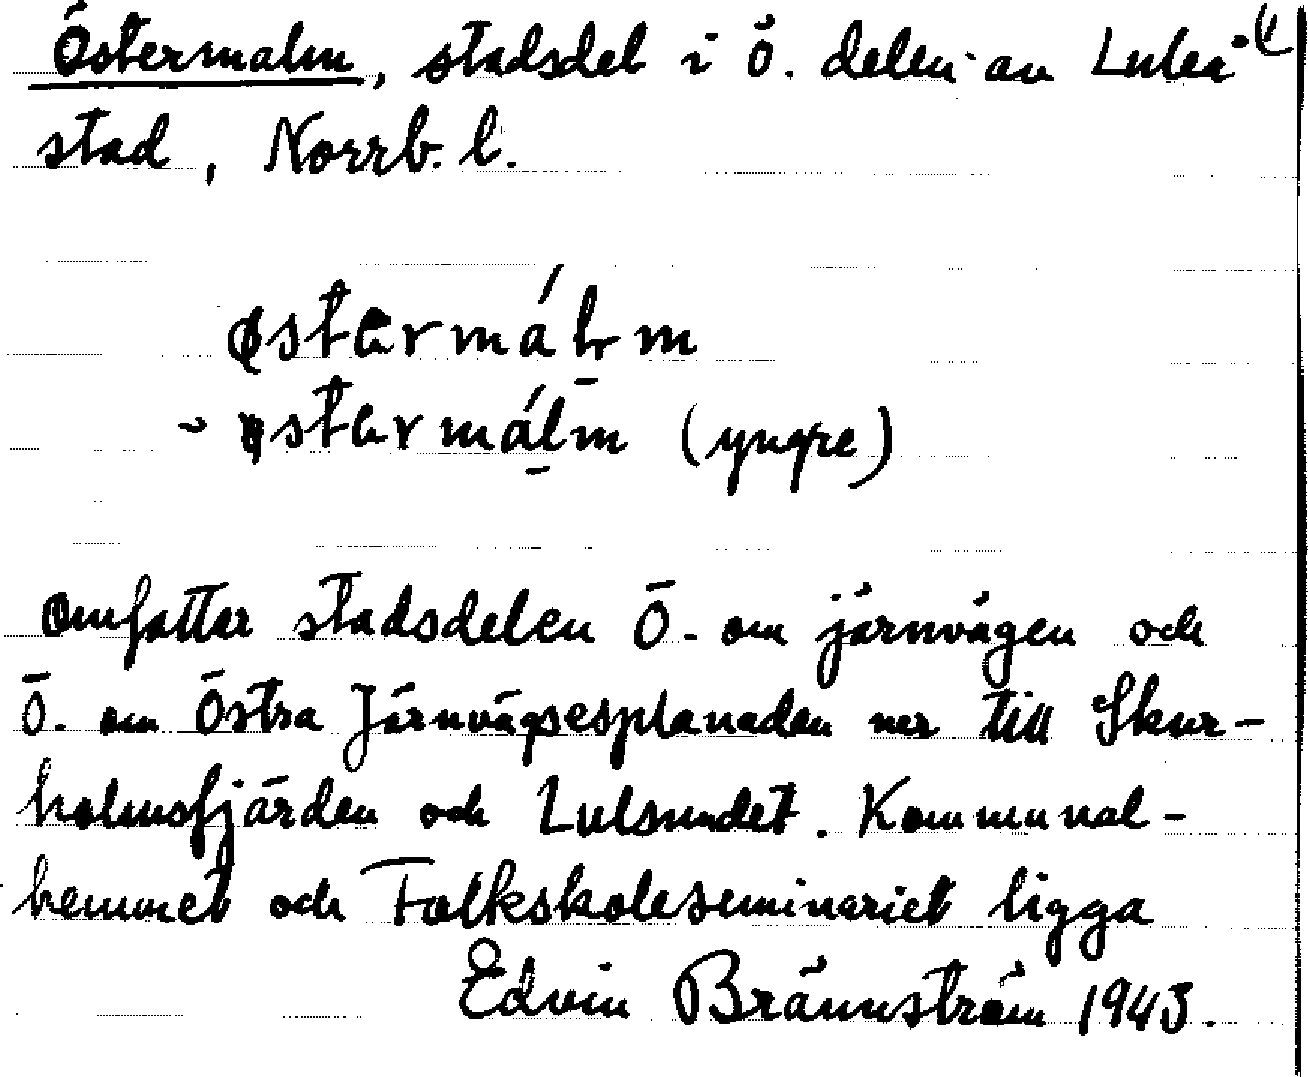 Östermalm, stadsdel i ö. delen av Luleå (1
stad, Norrb. l.
østərmáɫm
~ østərmálm (yngre)
omfattar stadsdelen Ö. om järnvägen och
Ö. om Östra Järnvägsesplanaden ner till Skur-
holmsfjärden och Lulsundet. Kommunal-
hemmet och Folkskoleseminariet ligga
Edvin Brännström 1943.